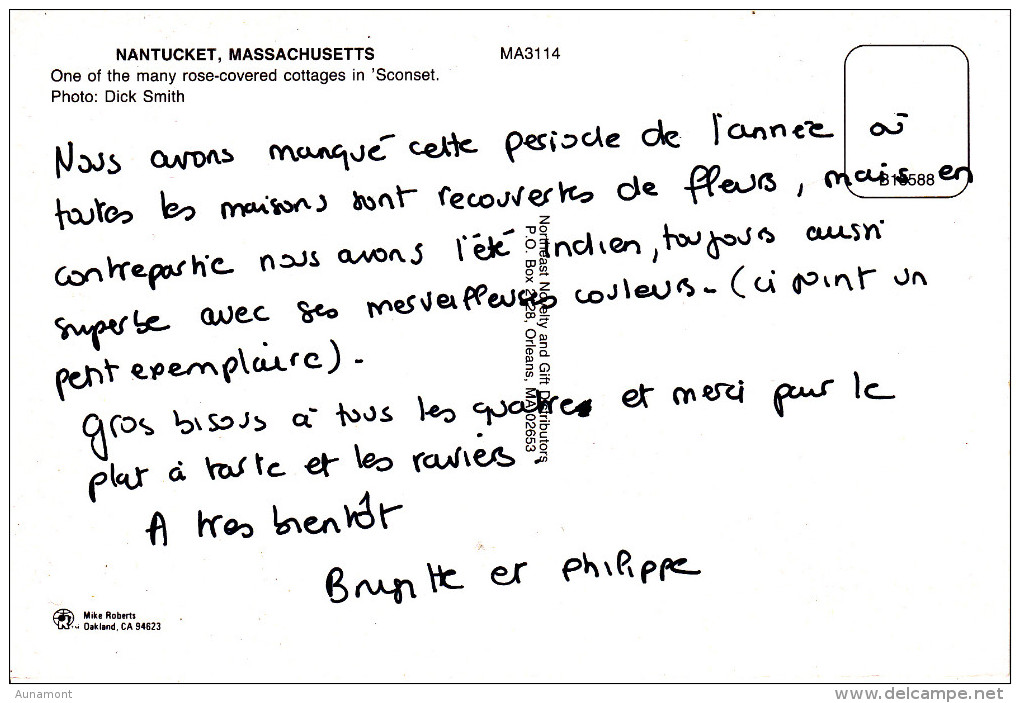 NANTUCKET, MASSACHUSETTS MA3114
One of the many rose-covered cottages in 'Sconset.
Photo: Dick Smith
B13588
Nous avons manqué cette periode de l'année où
toutes les maisons sont recouvertes de fleurs, mais en
contrepartie nous avons l'été indien, toujours aussi
superbe avec ses merveilleuses couleurs - (ci joint un
petit exemplaire) -
Gros bisous à tous les quatres et merci pour le
plat à tarte et les raviers.
A tres bientôt
Brigitte et philippe
Northeast Novelty and Gift Distributors
P.O. Box 2728, Orleans, MA 02653
Mike Roberts
Oakland, CA 94623
Aunamont
www.delcampe.net